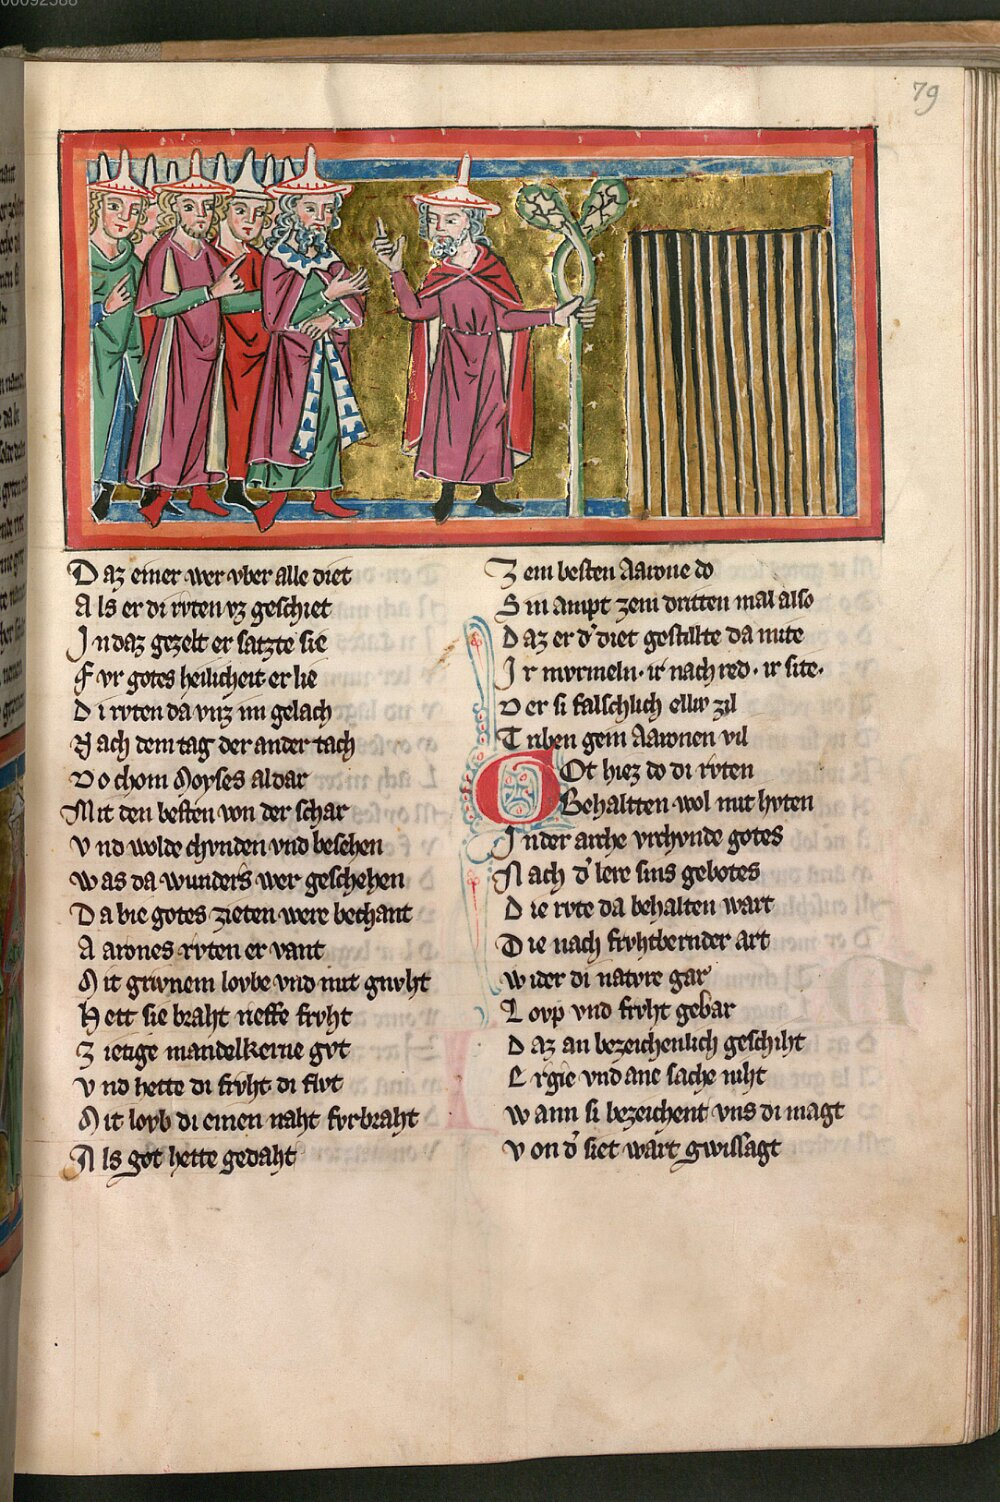 00092588
79
Daz einer wer vber alle diet
Als er di rvten vz geschiet
In daz gezelt er satzte sie
Fvr gotes heilicheit er lie
Di rvten da vnz im gelach
Nach dem tag der ander tach
Do chom Moyses aldar
Mit den besten von der schar
Vnd wolde chvnden vnd besehen
Was da wunders wer geschehen
Da bie gotes zieten were bechant
Aarones rvten er vant
Mit grvnem lovbe vnd mit gnvht
Hett sie braht neffe frvht
Zietige mandelkerne gvt
Vnd hette di frvht di flvt
Mit lovb di einen naht fvrbraht
Als got hette gedaht
Zem besten Aarone do
Sin ampt zem dritten mal also
Daz er d' diet gestillte da mite
Ir mvrmeln · ir nach red · ir site ·
Der si falschlich elliv zil
Triben gein Aaronen vil
Got hiez do di rvten
Behaltten wol mit hvten
In der arche vrchvnde gotes
Nach d' lere sins gebotes
Die rvte da behalten wart
Die nach frvhtbernder art
Wider di natvre gar
Lovp vnd frvht gebar
Daz an bezeichenlich geschiht
Ergie vnd ane sache niht
Wann si bezeichent vns di magt
Von d' siet wart gwissagt